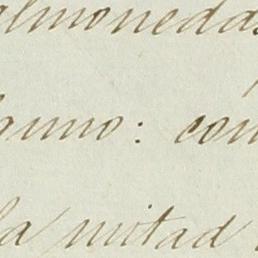 almonedas
guno: con
la mitad